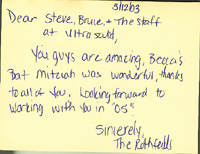 3/12/03
Dear Steve, Bruce, & The Staff
at Ultra Sound,
You guys are amazing, Becca's
Bat Mitzvah was wonderful, thanks
to all of you. Looking forward to
working with you in "05"
Sincerely,
The Rothfelds